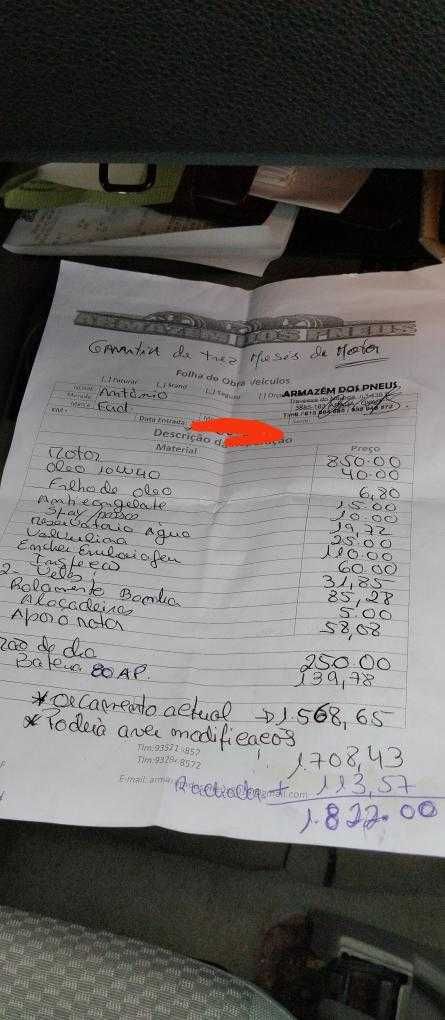 ARMAZEM DOS PNEUS
Garantia de tres Meses de Motor
Folha de Obra Veículos
[ ] Faturar [ ] Stand [ ] Seguro [ ] Orç
ARMAZÉM DOS PNEUS,
Nome: António
Marca: Ford
KM:
Data Entrada
Descrição da
Material Preço
Motor 850.00
Oleo 10W40 40.00
Filho de oleo 6,80
Anticongelate 15.00
10.00
reservatorio Agua 19,72
Valvulina 25.00
Encher Embraiagem 110.00
Inspeção 60.00
2- Velas 31,85
Rolamento Bomba 85,28
Abaçadeiras 5.00
Apoio motor 58,08
Mão de obra 250.00
Bateria 80 AP. 139,78
* Orcamento actual → 1.568,65
* Poderia aver modificacos
1.708,43
113,57
1.822.00
Tlm:
Tlm:
E-mail: